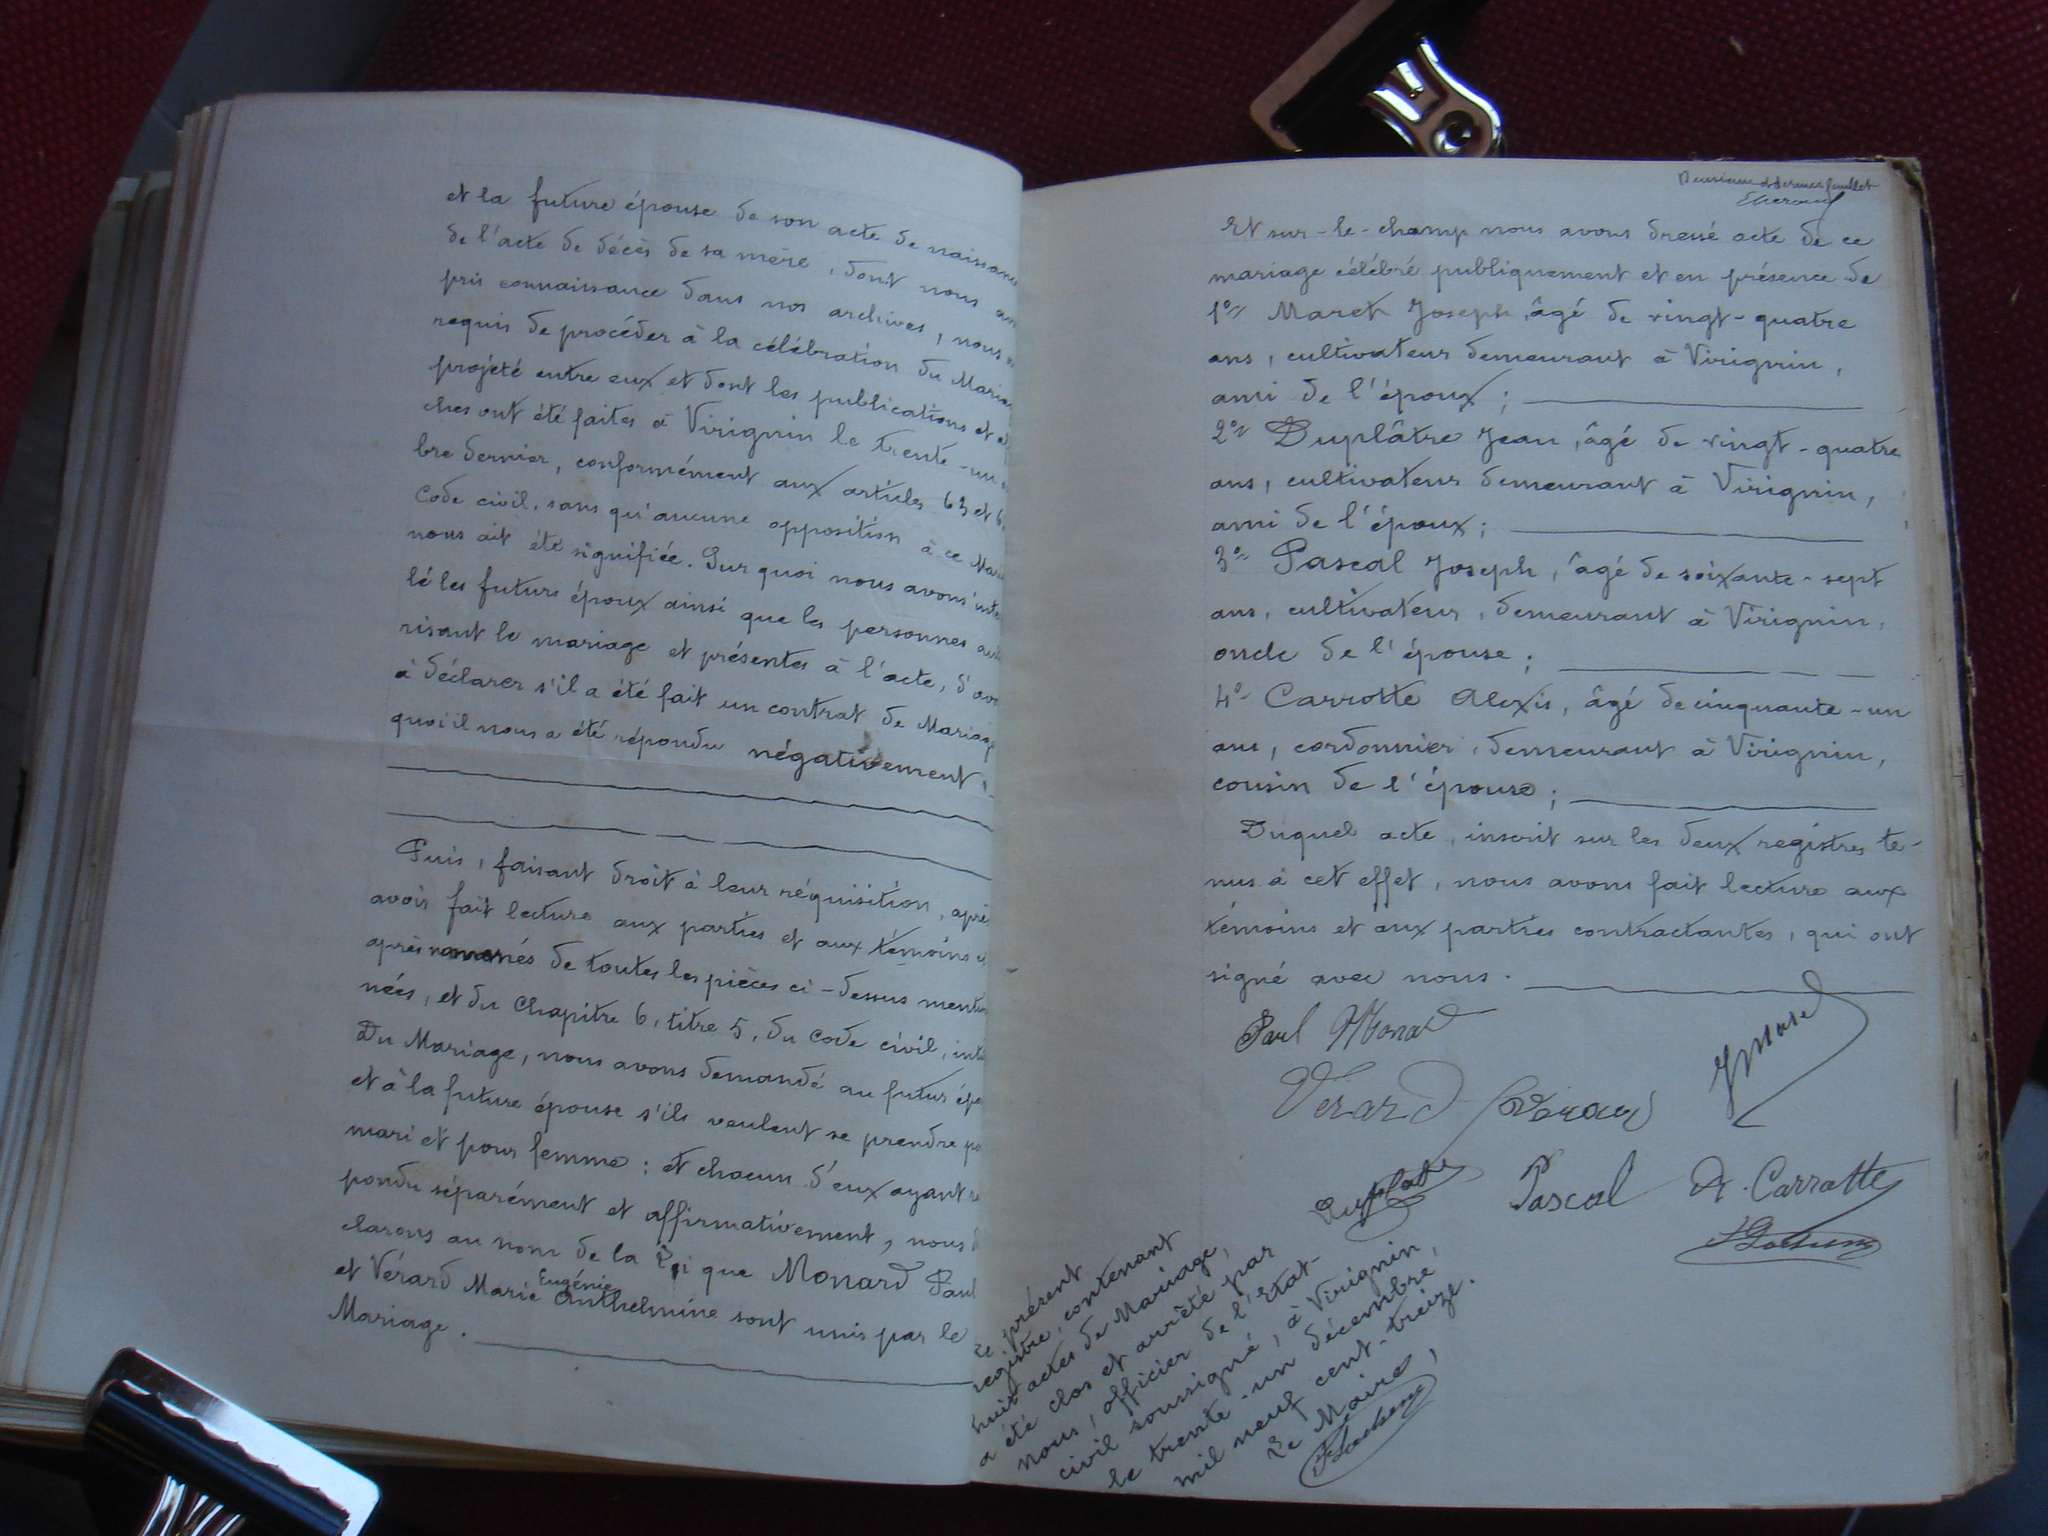 et la future épouse de son acte de naissance
de l'acte de décès de sa mère, dont nous
pris connaissance dans nos archives, nous
requis de procéder à la célébration du Maria
projété entre eux et dont les publications et
ches ont été faites à Virignin le trente-un
bre dernier, conformément aux articles 63 et 6
Code civil, sans qu'aucune opposition à ce Mar
nous ait été signifiée. Sur quoi nous avons inte
lé les futurs époux ainsi que les personnes auto
risant le mariage et présentes à l'acte, d'avo
à déclarer s'il a été fait un contrat de Mariag
quoi il nous a été répondu négativement.
Puis, faisant droit à leur réquisition, aprè
avoir fait lecture aux parties et aux témoins ci
après nommés de toutes les pièces ci-dessus mention
nées, et du Chapitre 6, titre 5, du Code civil, inti
Du Mariage, nous avons demandé au futur épo
et à la future épouse s'ils veulent se prendre po
mari et pour femme : et chacun d'eux ayant ré
pondu séparément et affirmativement, nous d
clarons au nom de la loi que Monard Paul
Eugénie
et Vérard Marie Anthelmine sont unis par le
Mariage.
Deuxième et dernier feuillet
Et sur-le-champ nous avons dressé acte de ce
mariage célébré publiquement et en présence de
1° Maret Joseph, âgé de vingt-quatre
ans, cultivateur demeurant à Virignin,
ami de l'époux ;
2° Duplâtre Jean, âgé de vingt-quatre
ans, cultivateur demeurant à Virignin,
ami de l'époux ;
3° Pascal Joseph, âgé de soixante-sept
ans, cultivateur, demeurant à Virignin,
oncle de l'épouse ;
4° Carrotte Alexis, âgé de cinquante-un
ans, cordonnier, demeurant à Virignin,
cousin de l'épouse ;
Duquel acte, inscrit sur les deux registres te-
nus à cet effet, nous avons fait lecture aux
témoins et aux parties contractantes, qui ont
signé avec nous.
Paul Monard
Vérard
Duplatre Pascal A. Carrotte
Le présent
registre, contenant
huit actes de Mariage,
a été clos et arrêté par
nous, officier de l'Etat-
civil soussigné, à Virignin,
le trente-un décembre
mil neuf cent-treize.
Le Maire,